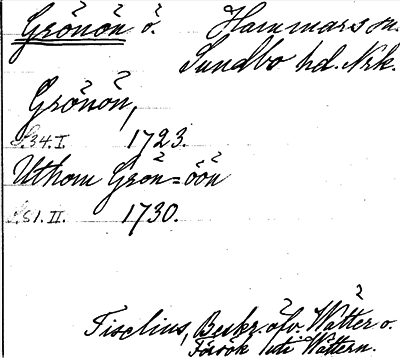 Grönön ö. Hammars sn.
Sundbo hd. Nrk.
Grönön,
S.34.I. 1723.
Uthom Grön=öön
S.51.II. 1730.
Tiselius, Beskr. öfv. Wätter o.
Försök uti Wättern.